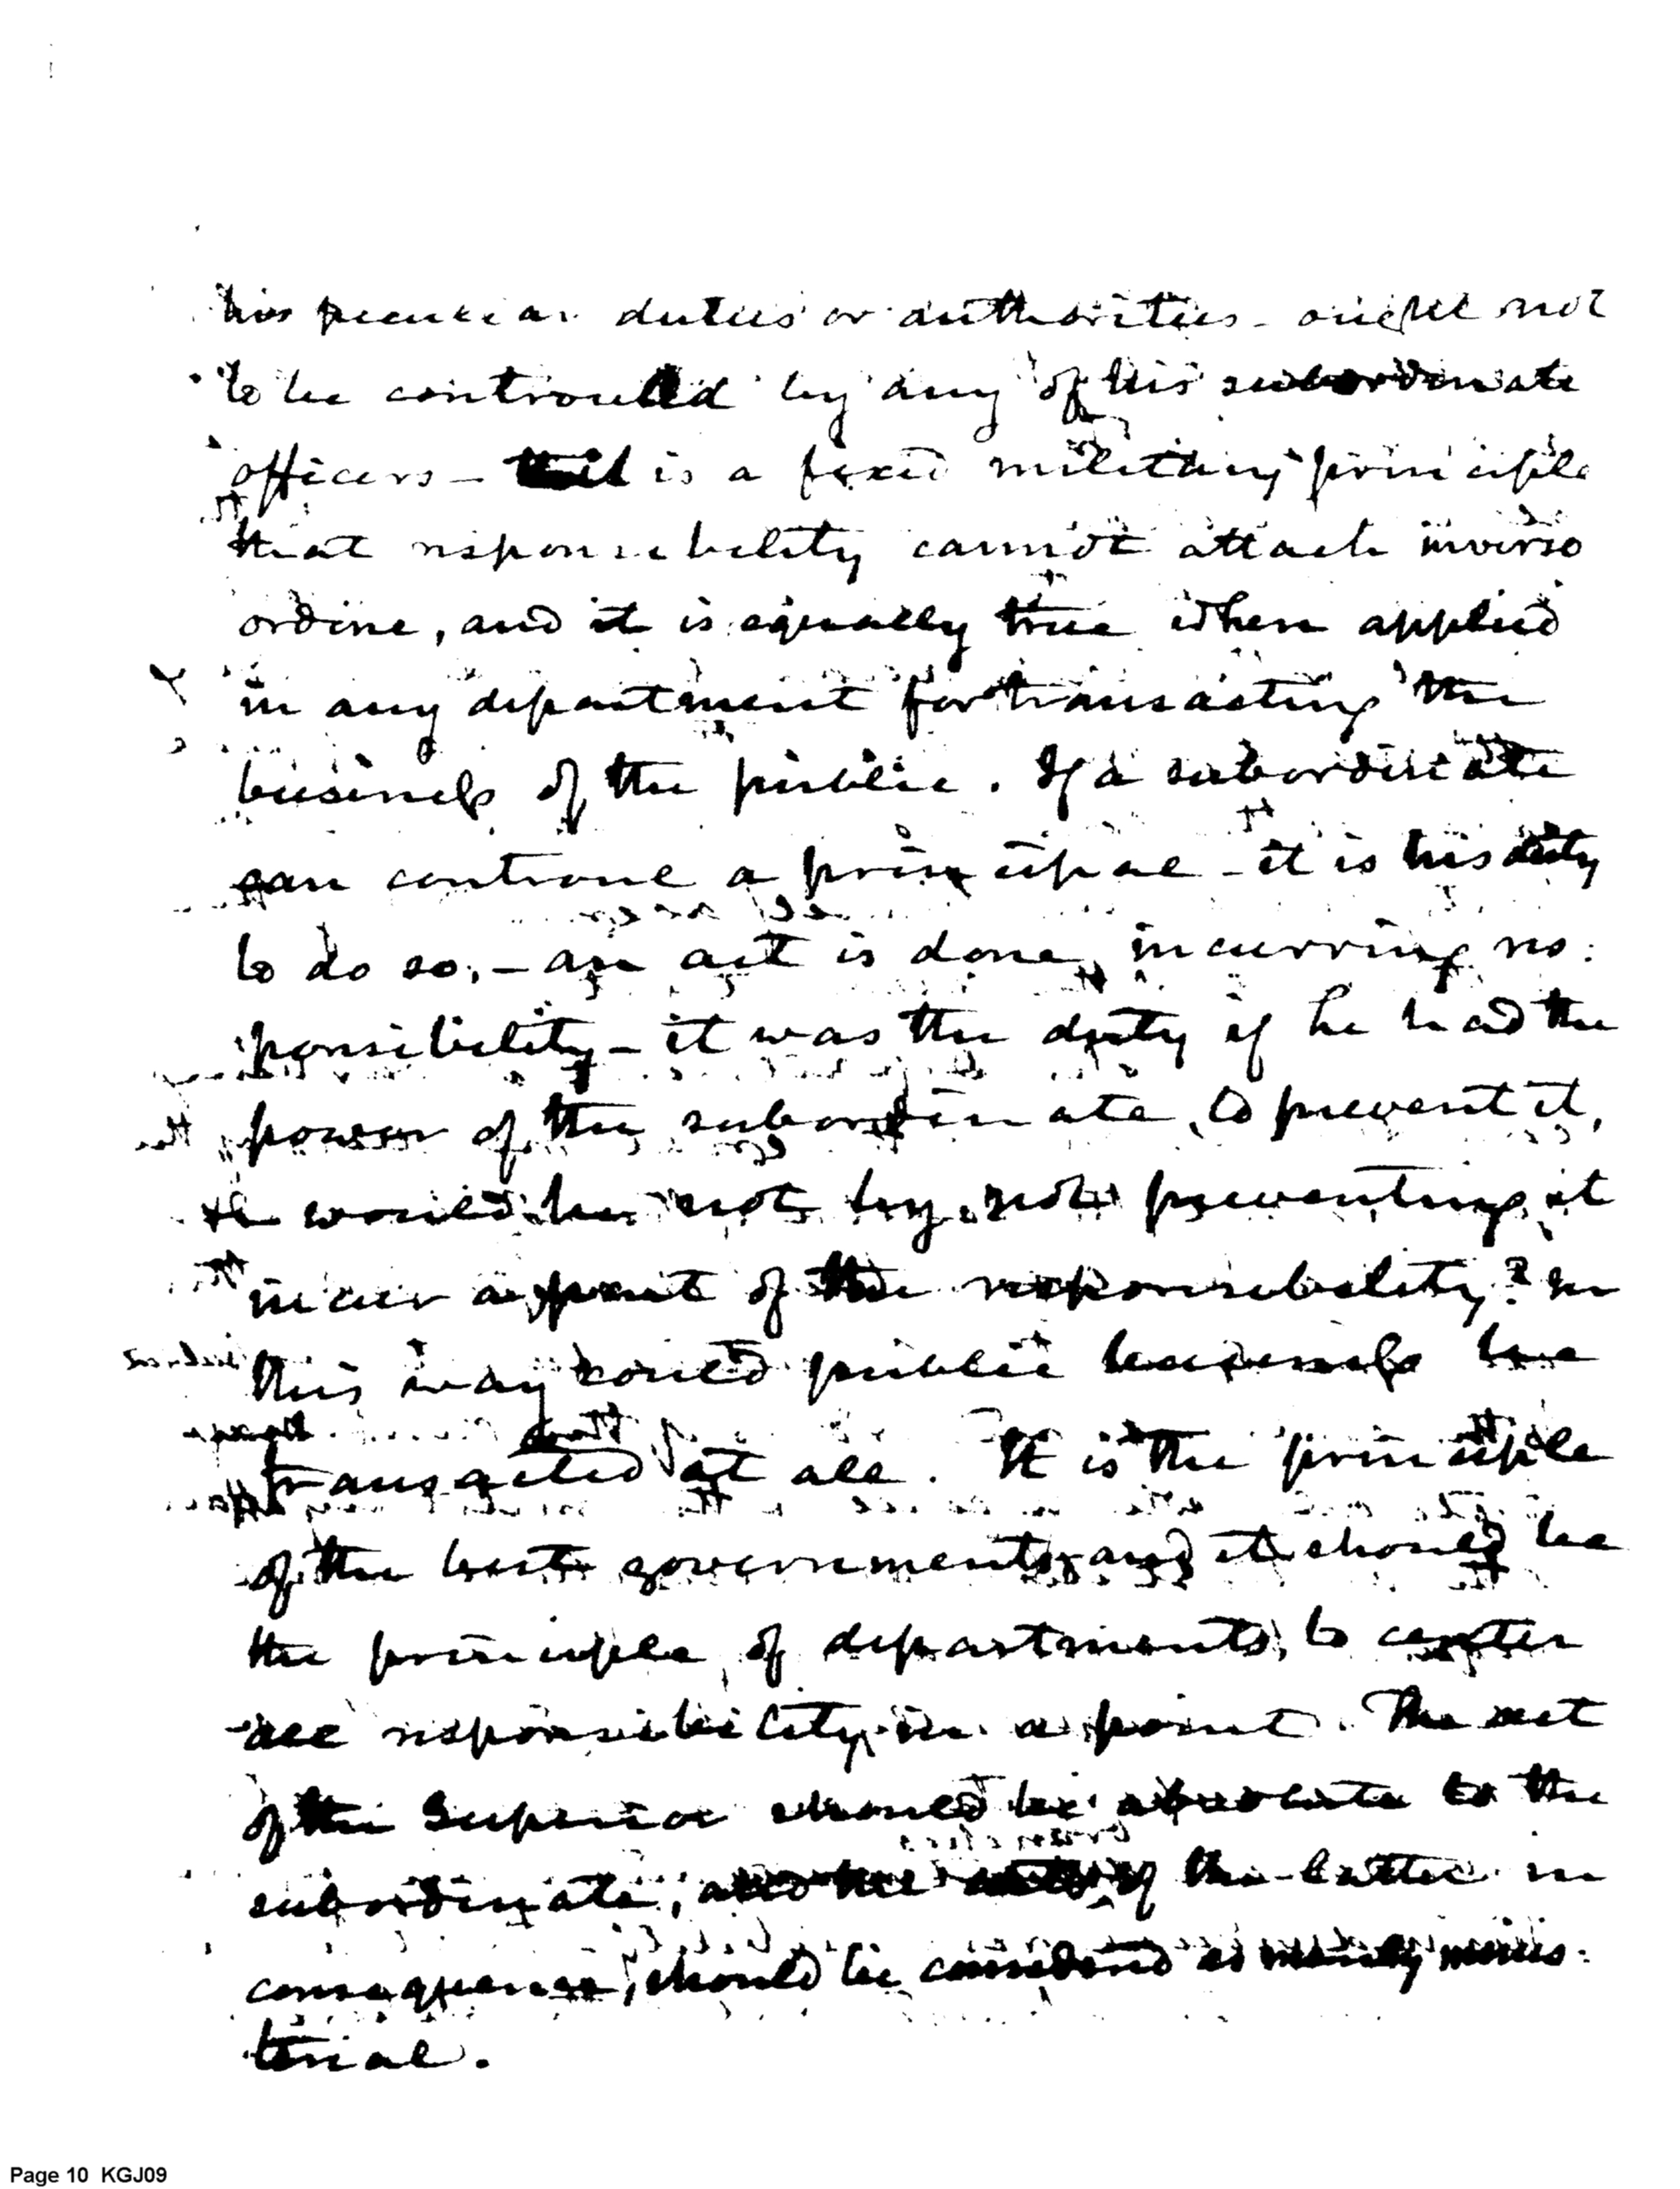 his peculiar duties or authorities - ought not
to be controulled by any of his subordinate
officers - it is a fixed military principle
that responsibility cannot attach inverso
ordine, and it is equally true when applied
in any department for transacting the
business of the public. If a subordinate
can controul a principal - it is his duty
to do so, - an act is done, incurring res:
ponsibility - it was the duty if he had the
power of the subordinate, to prevent it,
would he not by not preventing it
incur a part of the responsibility? In
this way could public business be
transacted at all. It is the principle
of the best governments, and it should be
the principle of departments, to center
all responsibility in a point. The act
of the Superior should be absolute to the
subordinate, and the acts of the latter in
consequence, should be considered as merely minis:
terial.
Page 10 KGJ09